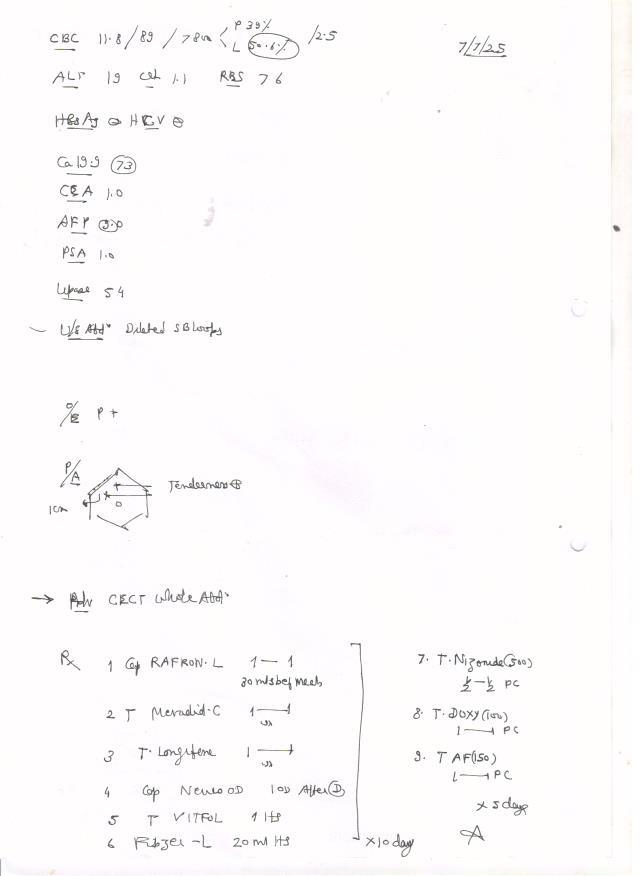 CBC 11.8 / 89 / 7800 < P 39% L 50.6% / 2.5
7/7/25
ALT 19 1.1 RBS 76
HBsAg ⊖ HCV ⊖
Ca 19.9 73
CEA 1.0
AFP 3.0
PSA 1.0
Lipase 54
U/S Abd Dilated SB loops
O/E P +
P/A Tenderness ⊕
1cm
→ Adv CECT Whole Abd
Rx 1 Cap RAFRON-L 1 — 1
30 mts bef meals
2 T 1 — 1
3 T. Longifene 1 — 1
4 Cap Neuro OD 1 OD After
5 T VITFOL 1 HS
6 -L 20 ml HS
x 10 day
7. T. Nizonide (500)
½ — ½ PC
8. T. DOXY (100)
1 — 1 PC
9. T AF (150)
1 — 1 PC
x 5 days